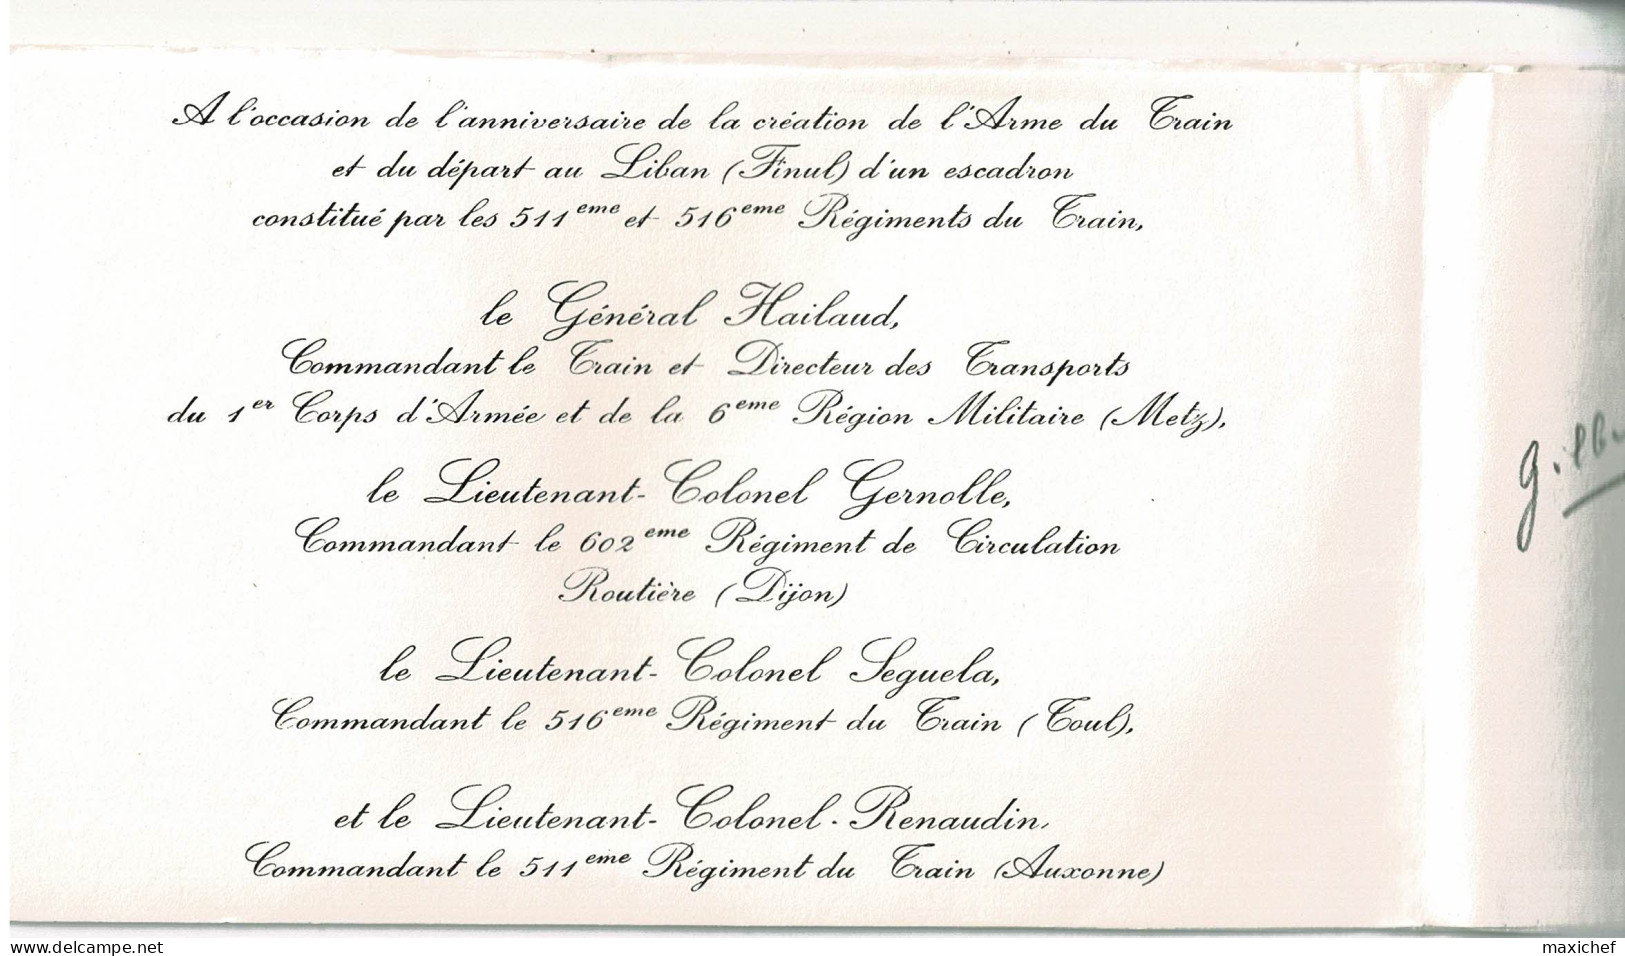 A l'occasion de l'anniversaire de la création de l'Arme du Train
et du départ au Liban (Finul) d'un escadron
constitué par les 511eme et 516eme Régiments du Train,
le Général Hailaud,
Commandant le Train et Directeur des Transports
du 1er Corps d'Armée et de la 6eme Région Militaire (Metz),
le Lieutenant-Colonel Gernolle,
Commandant le 602eme Régiment de Circulation
Routière (Dijon)
le Lieutenant-Colonel Seguela,
Commandant le 516eme Régiment du Train (Toul),
et le Lieutenant-Colonel-Renaudin,
Commandant le 511eme Régiment du Train (Auxonne)
www.delcampe.net
maxichef